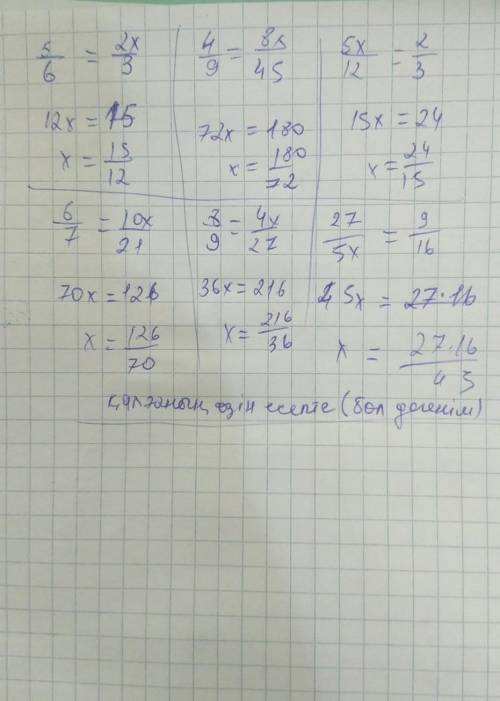 5/6 = 2x/3
12x = 15
x = 15/12
4/9 = 8x/45
72x = 180
x = 180/72
5x/12 = 2/3
15x = 24
x = 24/15
6/7 = 10x/21
70x = 126
x = 126/70
8/9 = 4x/27
36x = 216
x = 216/36
27/5x = 9/16
45x = 27·16
x = 27·16/45
қалғанын өзін есепте (бөл дегенім)